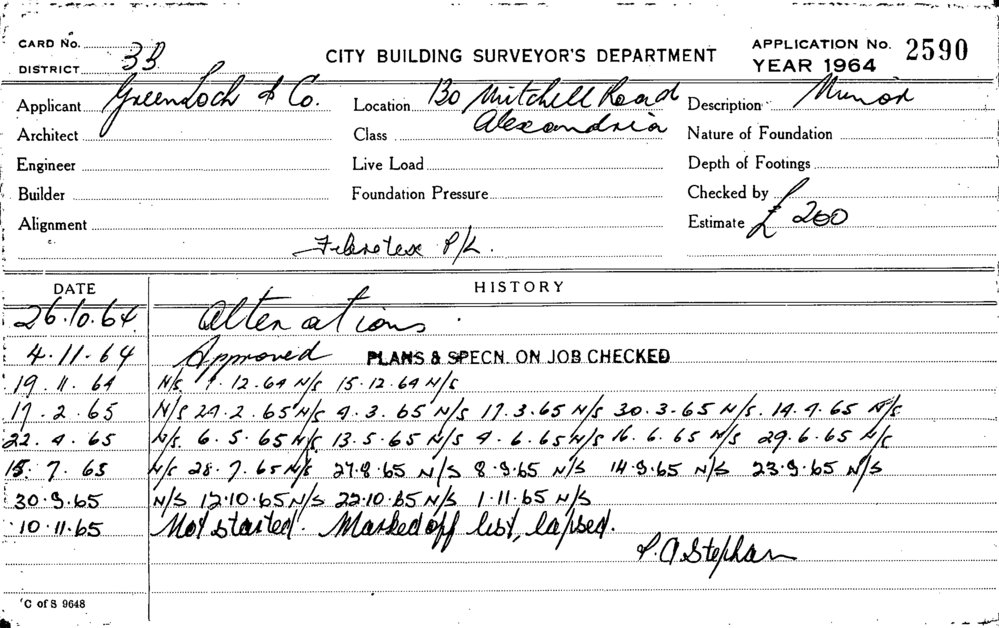 CARD No. CITY BUILDING SURVEYOR'S DEPARTMENT APPLICATION No. 2590
DISTRICT 3B YEAR 1964
Applicant Greenloch & Co. Location 130 Mitchell Road Description Minor
Architect Class Alexandria Nature of Foundation
Engineer Live Load Depth of Footings
Builder Foundation Pressure Checked by
Alignment Estimate £ 200
Fibretex P/L.
DATE HISTORY
26.10.64 Alterations.
4.11.64 Approved PLANS & SPECN. ON JOB CHECKED
19.11.64 N/S 12.64 N/S 15.12.64 N/S
17.2.65 N/S 24.2.65 N/S 4.3.65 N/S 17.3.65 N/S 30.3.65 N/S. 14.4.65 N/S
22.4.65 N/S. 6.5.65 N/S 13.5.65 N/S 4.6.65 N/S 16.6.65 N/S 29.6.65 N/S
15.7.65 N/S 28.7.65 N/S 27.8.65 N/S 8.9.65 N/S 14.9.65 N/S 23.9.65 N/S
30.9.65 N/S 12.10.65 N/S 22.10.65 N/S 1.11.65 N/S
10.11.65 Not started. Marked off list, lapsed.
P. A Stephan
C of S 9648